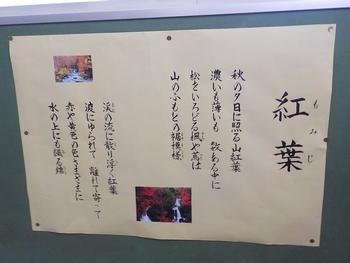 紅葉
もみじ
秋の夕日に照る山紅葉
濃いも薄いも 数ある中に
松をいろどる楓や蔦は
山のふもとの裾模様
渓の流に散り浮く紅葉
波にゆられて 離れて寄って
赤や黄色の色さまざまに
水の上にも織る錦